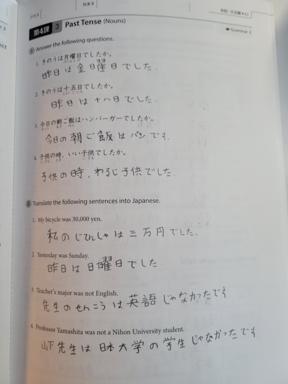 第4課 3 Past Tense (Nouns)
Grammar 3
A Answer the following questions.
1. きのうは月曜日でしたか。
昨日は金曜日でした
2. きのうは十五日でしたか。
昨日は十八日でした
3. 今日の朝ご飯はハンバーガーでしたか。
今日の朝ご飯はパンです。
4. 子供の時、いい子供でしたか。
子供の時、わるい子供でした
B Translate the following sentences into Japanese.
1. My bicycle was 30,000 yen.
私のじてんしゃは三万円でした。
2. Yesterday was Sunday.
昨日は日曜日でした
3. Teacher's major was not English.
先生のせんこうは英語じゃなかったです
4. Professor Yamashita was not a Nihon University student.
山下先生は日本大学の学生じゃなかったです